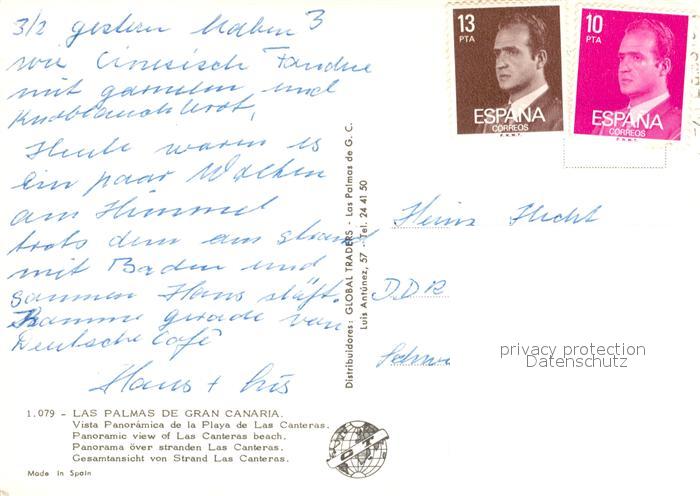 3/2 gestern Haben 3
wir Cinesisch Fondue
mit garnelen und
Knoblauchbrot,
Heute waren es
ein paar Wolken
am Himmel
trots dem am strand
mit Baden und
sonnen Hans släft.
Komme gerade van
Deutsche Café
Hans + Iris
1.079 - LAS PALMAS DE GRAN CANARIA.
Vista Panorámica de la Playa de Las Canteras.
Panoramic view of Las Canteras beach.
Panorama över stranden Las Canteras.
Gesamtansicht von Strand Las Canteras.
Made in Spain
Distribuidores: GLOBAL TRADERS - Las Palmas de G. C.
Luis Antúnez, 57 - Tel. 24 41 50
13
PTA
ESPAÑA
CORREOS
F.N.M.T.
10
PTA
ESPAÑA
CORREOS
F.N.M.T.
Heinz
DDR
privacy protection
Datenschutz